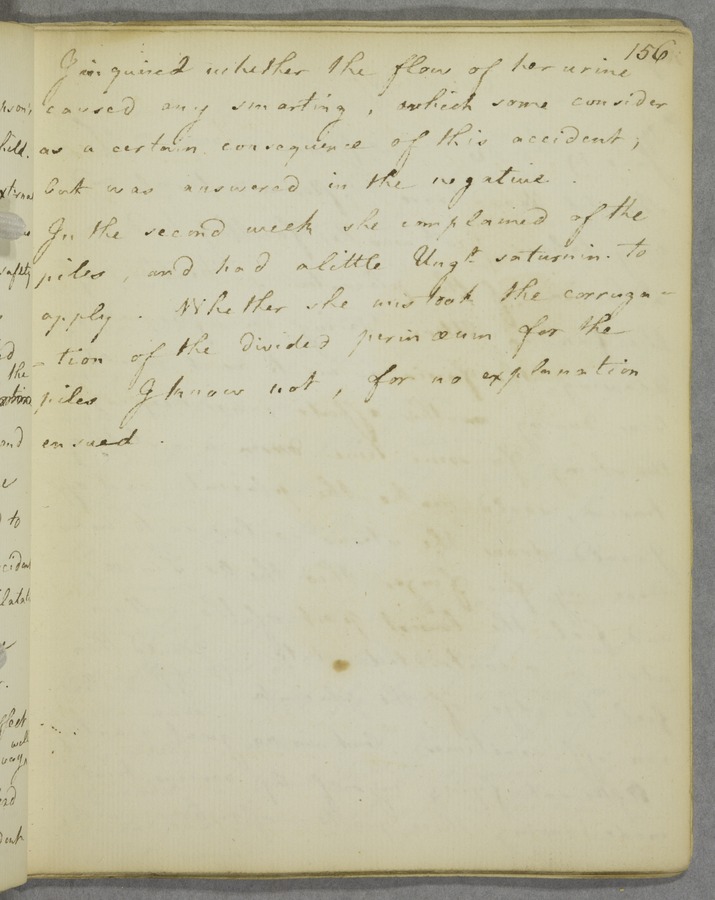 156
I inquired whether the flow of her urine
caused any smarting, which some consider
as a certain consequence of this accident;
but was answered in the negative.
In the second week she complained of the
piles, and had a little Ungt. saturnin. to
apply. Whether she mistook the corruga-
-tion of the divided perinæum for the
piles I know not, for no explanation
ensued.